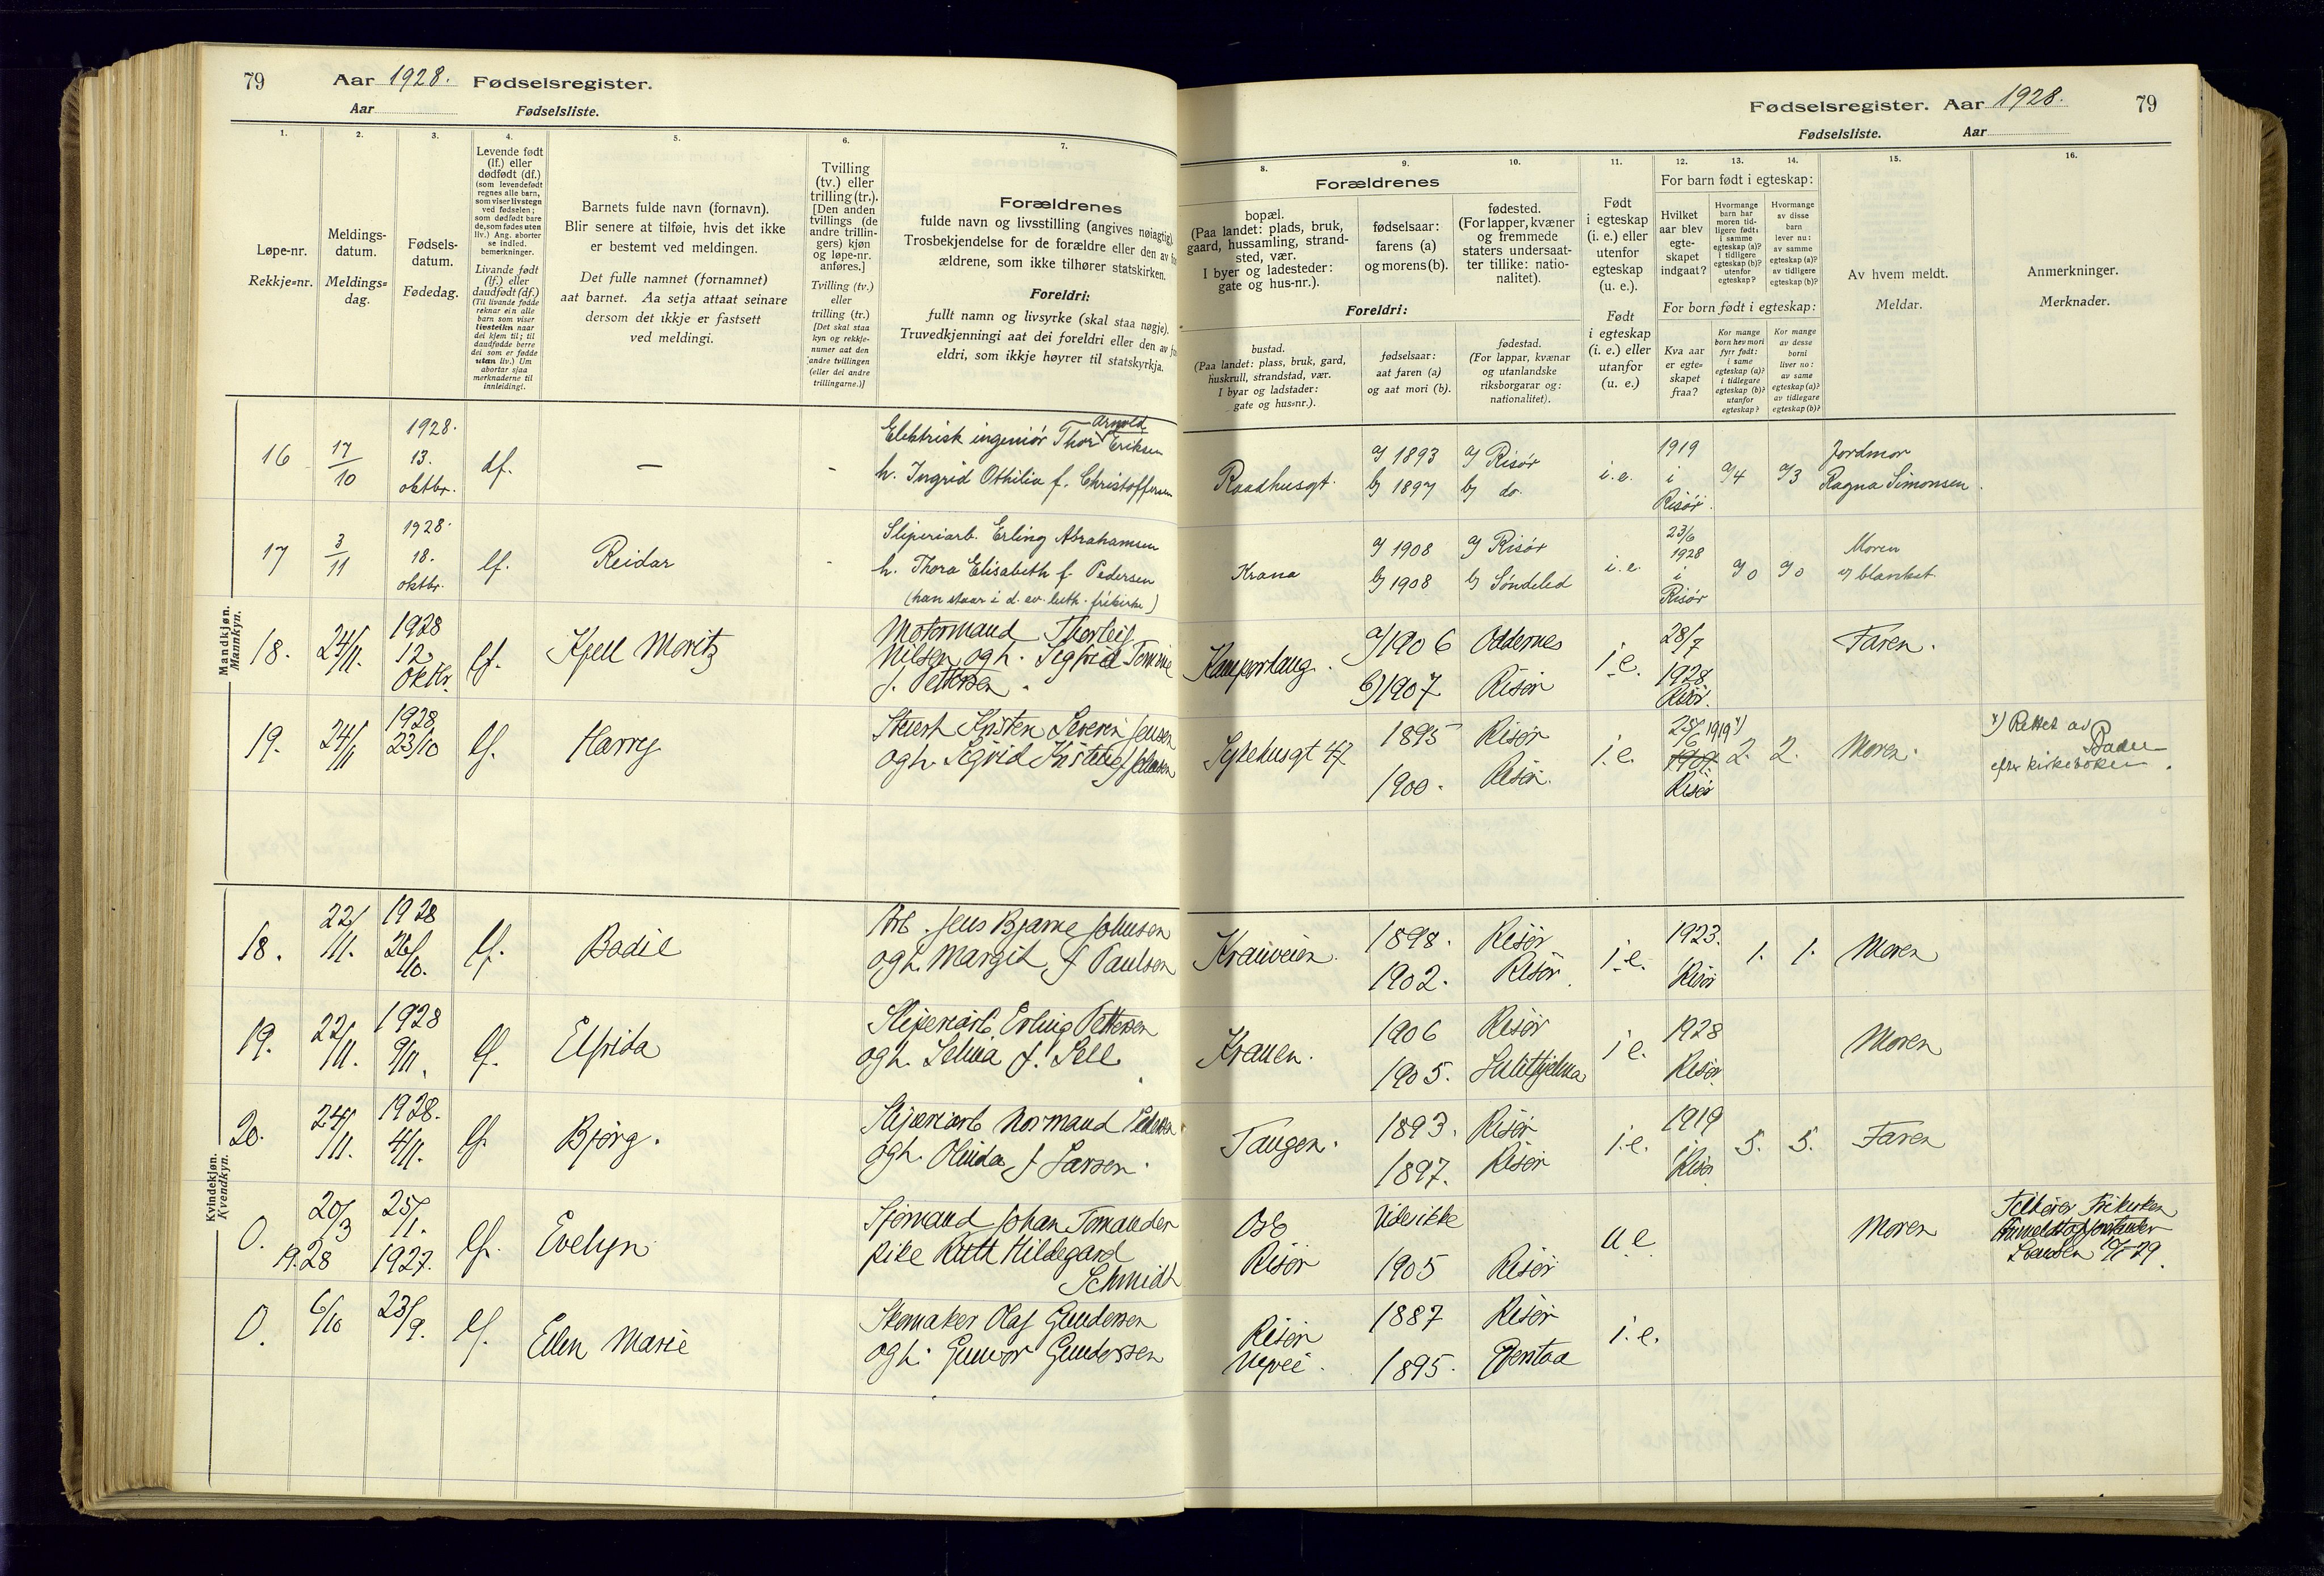 79 Aar 1928. Fødselsregister.
Aar Fødselsliste.
Fødselsregister. Aar 1928. 79
Fødselsliste. Aar
1. 2. 3. 4. 5. 6. 7.
Løpe-nr.
Rekkje=nr.
Meldings-
datum.
Meldings=
dag.
Fødsels-
datum.
Fødedag.
Levende født
(lf.) eller
dødfødt (df.)
(som levendefødt
regnes alle barn,
som viser livstegn
ved fødselen;
som dødfødt bare
de, som fødes uten
liv.) Ang. aborter
se indled.
bemerkninger.
Livande født
(lf.) eller
daudfødt (df.)
(Til livande fødde
reknar ein alle
barn som viser
livsteikn naar
dei kjem til; til
daudfødde berre
dei som er fødde
utan liv.) Um
abortar sjaa
merknaderne til
innleiding!.
Barnets fulde navn (fornavn).
Blir senere at tilføie, hvis det ikke
er bestemt ved meldingen.
Det fulle namnet (fornamnet)
aat barnet. Aa setja attaat seinare
dersom det ikkje er fastsett
ved meldingi.
Tvilling
(tv.) eller
trilling (tr.).
[Den anden
tvillings (de
andre trillin-
gers) kjøn
og løpe-nr.
anføres.]
Tvilling (tv.)
eller
trilling (tr.)
[Det skal staa
kyn og rekkje-
numer aat den
andre tvillingen
(eller dei andre
trillingarne.)]
Forældrenes
fulde navn og livsstilling (angives nøiagtig).
Trosbekjendelse for de forældre eller den av for
ældrene, som ikke tilhører statskirken.
Foreldri:
fullt namn og livsyrke (skal staa nøgje).
Truvedkjenningi aat dei foreldri eller den av
eldri, som ikkje høyrer til statskyrkja.
8. 9. 10. 11. 12. 13. 14. 15. 16.
Forældrenes
bopæl.
(Paa landet: plads, bruk,
gaard, hussamling, strand-
sted, vær.
I byer og ladesteder:
gate og hus-nr.).
fødselsaar:
farens (a)
og morens (b).
fødested.
(For lapper, kvæner
og fremmede
staters undersaat-
ter tillike: natio-
nalitet).
Foreldri:
bustad.
(Paa landet: plass, bruk, gard,
huskrull, strandstad, vær.
I byar og ladstader:
gate og hus=nr.).
fødselsaar:
aat faren (a)
og aat mori (b).
fødestad.
(For lappar, kvænar
og utanlandske
riksborgarar og:
nationalitet).
Født
i egteskap
(i. e.) eller
utenfor
egteskap
(u. e.).
Født
i egteskap
(i. e.) eller
utanfor
(u. e.)
For barn født i egteskap:
Hvilket
aar blev
egte-
skapet
indgaat?
Hvormange
barn har
moren tid-
ligere født:
i samme
egteskap (a)?
i tidligere
egteskap (b)?
utenfor
egteskap?
Hvormange
av disse
barn
lever nu:
av samme
egteskap (a)?
av tidligere
egteskap (b)?
For born født i egteskap:
Kva aar
er egte=
skapet
fraa?
Kor mange
born hev mori
fyrr født:
i same
egteskap (a)?
i tidlegare
egteskap (b)?
utanfor
egteskap?
Kor mange
av desse
borni
liver no:
av same
egteskap (a)?
av tidlegare
egteskap (b)?
Av hvem meldt.
Meldar.
Anmerkninger.
Merknader.
Mandkjøn.
Mannkyn.
16 17/10 1928. 13. oktbr. df. — -
Elektrisk ingeniör Thor Arnold Eriksen
h. Ingrid Othilia f. Christoffersen
Raadhusgt. a) 1893 b) 1897 a) Risör b) do. i.e. 1919 i Risör. a/4 a/3 Jordmor
Ragna Simonsen.
17 3/11 1928. 18. oktbr. lf. Reidar -
Sliperiarb. Erling Abrahamsen
h. Thora Elisabeth f. Pedersen
(han staar i d. ev. luth. frikirke)
Krana a) 1908 b) 1908 a) Risör b) Söndeled i.e. 23/6 1928 i Risör a/0 a/0 Moren
blanket.
18. 24/11. 1928 12 Oktbr. lf. Kjell Moritz
Motormand Thorleif
Nilsen og h. Sigfrid Tomine
f. Pettersen.
a) 1906 b) 1907 Oddernes Risør i.e. 28/7 1928. Risør. Faren.
19. 24/11 1928 23/10 lf. Harry
Stuert Kristen Severin Jensen
og h. Sigrid
Sykehusgt 47 1895 1900. Risør Risør. i.e. 28/6 1919 x) Risør 2. 2. Moren.
x) Rettet av
efter kirkeboken.
Kvindekjøn.
Kvendkyn.
18. 22/11. 1928 26/10. lf. Bodil
Arb. Jens Bjarne Johnsen
og h. Margit f Paulsen
Kranveien. 1898. 1902. Risør Risør. i.e. 1923. Risør 1. 1. Moren
19. 22/11. 1928 9/11. lf. Elfrida
Sliperiarb Erling Pettersen
og h. Selma f. Sell.
Kranen. 1906 1905. Risør Sulitjelma i e. 1928 Risør. Moren
20. 24/11. 1928. 4/11. lf. Bjørg.
Sliperiarb Normand Pedersen
og h. Olinda f Larsen.
Tangen. 1893. 1897. Risør Risør i.e. 1919 Risør 5. 5. Faren
0. 20/3 1928 25/1. 1927. lf. Evelyn
Sjømand Johan Tomander
pike Rutt Hildegard
Schmidt
Oslo
Risør Vides ikke 1905 Risør u e Moren
Tilhører Frikirken
0. 6/10 23/9. lf. Ellen Marie
Skomaker Olaf Gundersen
og h. Gunvor Gundersen
Risør
1887 1895. Risør Gjerstad i.e.